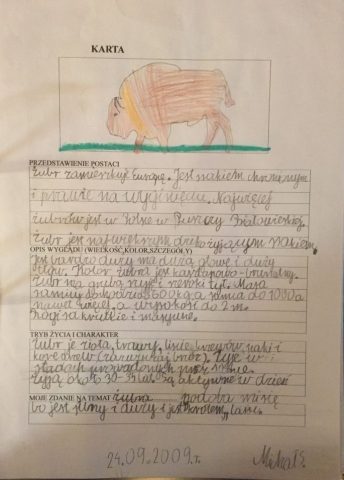 KARTA
PRZEDSTAWIENIE POSTACI
Żubr zamieszkuje Europę. Jest ssakiem chronionym
i prawie na wyginięciu. Najwięcej
żubrów jest w Polsce w Puszczy Białowieskiej.
Żubr jest największym dziko żyjącym ssakiem.
OPIS WYGLĄDU (WIELKOŚĆ,KOLOR,SZCZEGÓŁY)
Jest bardzo duży ma dużą głowę i duży
Kolor żubra jest kasztanowo-brunatny.
Ma grubą szyję i szeroki tył. Masa
samicy dochodzi do 600 kg a samca do 1000 a
nawet więcej a wysokość do 2 m.
Rogi są krótkie i masywne.
TRYB ŻYCIA I CHARAKTER
Żubr je zioła, trawy, liście krzewów,
korę drzew Żyje w
stadach prowadzonych przez
Żyją około 30-35 lat. Są aktywne w dzień
MOJE ZDANIE NA TEMAT żubra podoba mi się
bo jest silny i duży i jest królem lasu.
24.09.2009.r.